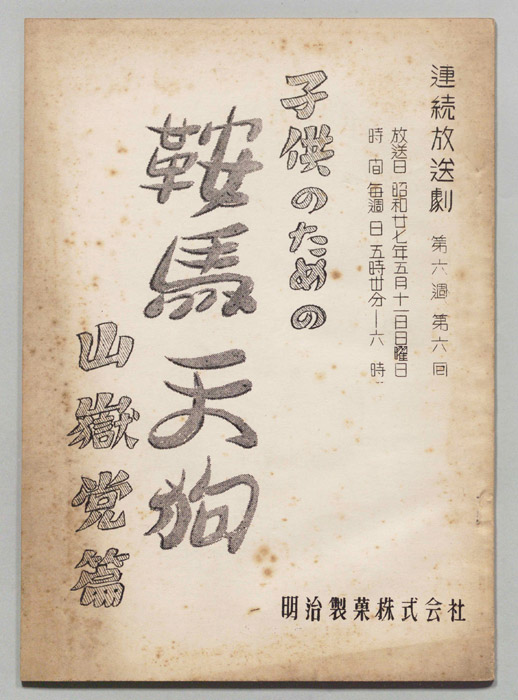 連続放送劇 第六週 第六回
放送日 昭和廿七年五月十一日日曜日
時間 毎週日 五時丗分―六時
子供のための
鞍馬天狗
山嶽党篇
明治製菓株式会社